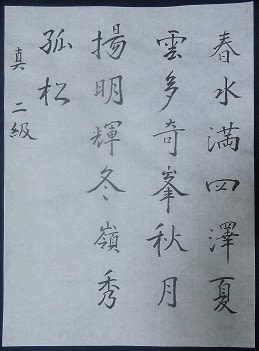 春水満四澤夏
雲多奇峯秋月
揚明輝冬嶺秀
孤松
真 二級